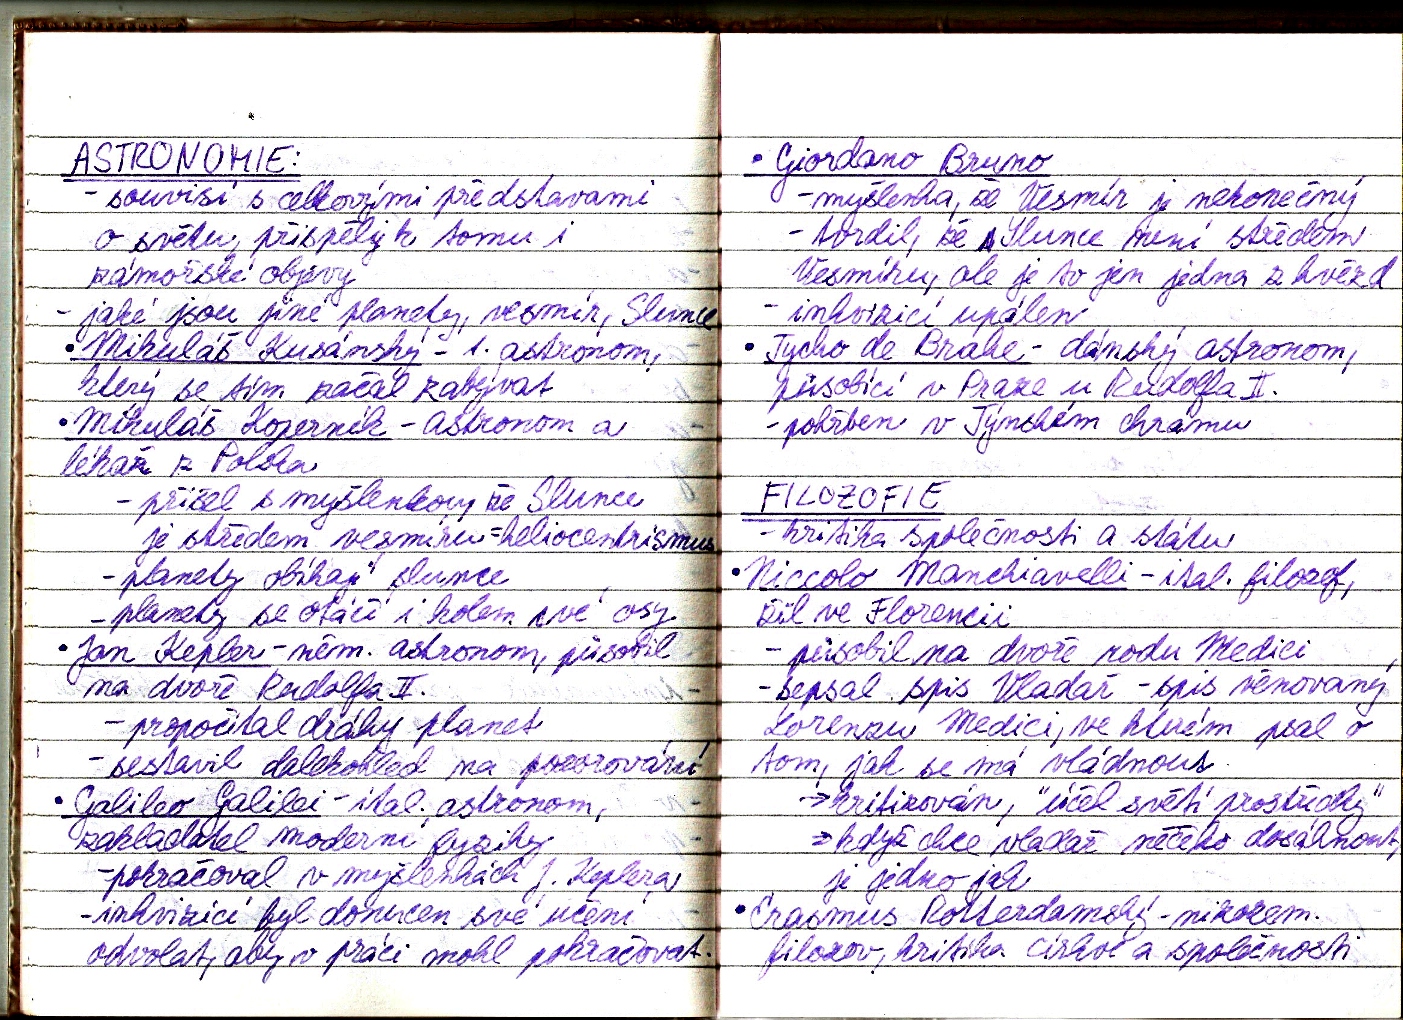 ASTRONOMIE:
- souvisí s celkovými představami
o světu, přispěly k tomu i
zámořské objevy
- jaké jsou jiné planety, vesmír, Slunce
• Mikuláš Kusánský - 1. astronom,
který se tím začal zabývat
• Mikuláš Koperník - astronom a
lékař z Polska
- přišel s myšlenkou, že Slunce
je středem vesmíru = heliocentrismus
- planety obíhají slunce
- planety se otáčí i kolem své osy
• Jan Kepler - něm. astronom, působil
na dvoře Rudolfa II.
- propočítal dráhy planet
- sestavil dalekohled na pozorování
• Galileo Galilei - ital. astronom,
zakladatel moderní fyziky
- pokračoval v myšlenkách J. Keplera
- inkvizicí byl donucen své učení
odvolat, aby v práci mohl pokračovat.
• Giordano Bruno
- myšlenka, že Vesmír je nekonečný
- tvrdil, že Slunce není středem
Vesmíru, ale je to jen jedna z hvězd
- inkvizicí upálen
• Tycho de Brahe - dánský astronom,
působící v Praze u Rudolfa II.
- pohřben v Týnském chrámu
FILOZOFIE
- kritika společnosti a státu
• Niccolo Manchiavelli - ital. filozof,
žil ve Florencii
- působil na dvoře rodu Medici
- sepsal spis Vladař - spis věnovaný
Lorenzu Medici, ve kterém psal o
tom, jak se má vládnout.
→ kritizován, "účel světí prostředky"
⇒ když chce vladař něčeho dosáhnout,
je jedno jak
• Erasmus Rotterdamský - nizozem.
filozov, kritika církve a společnosti